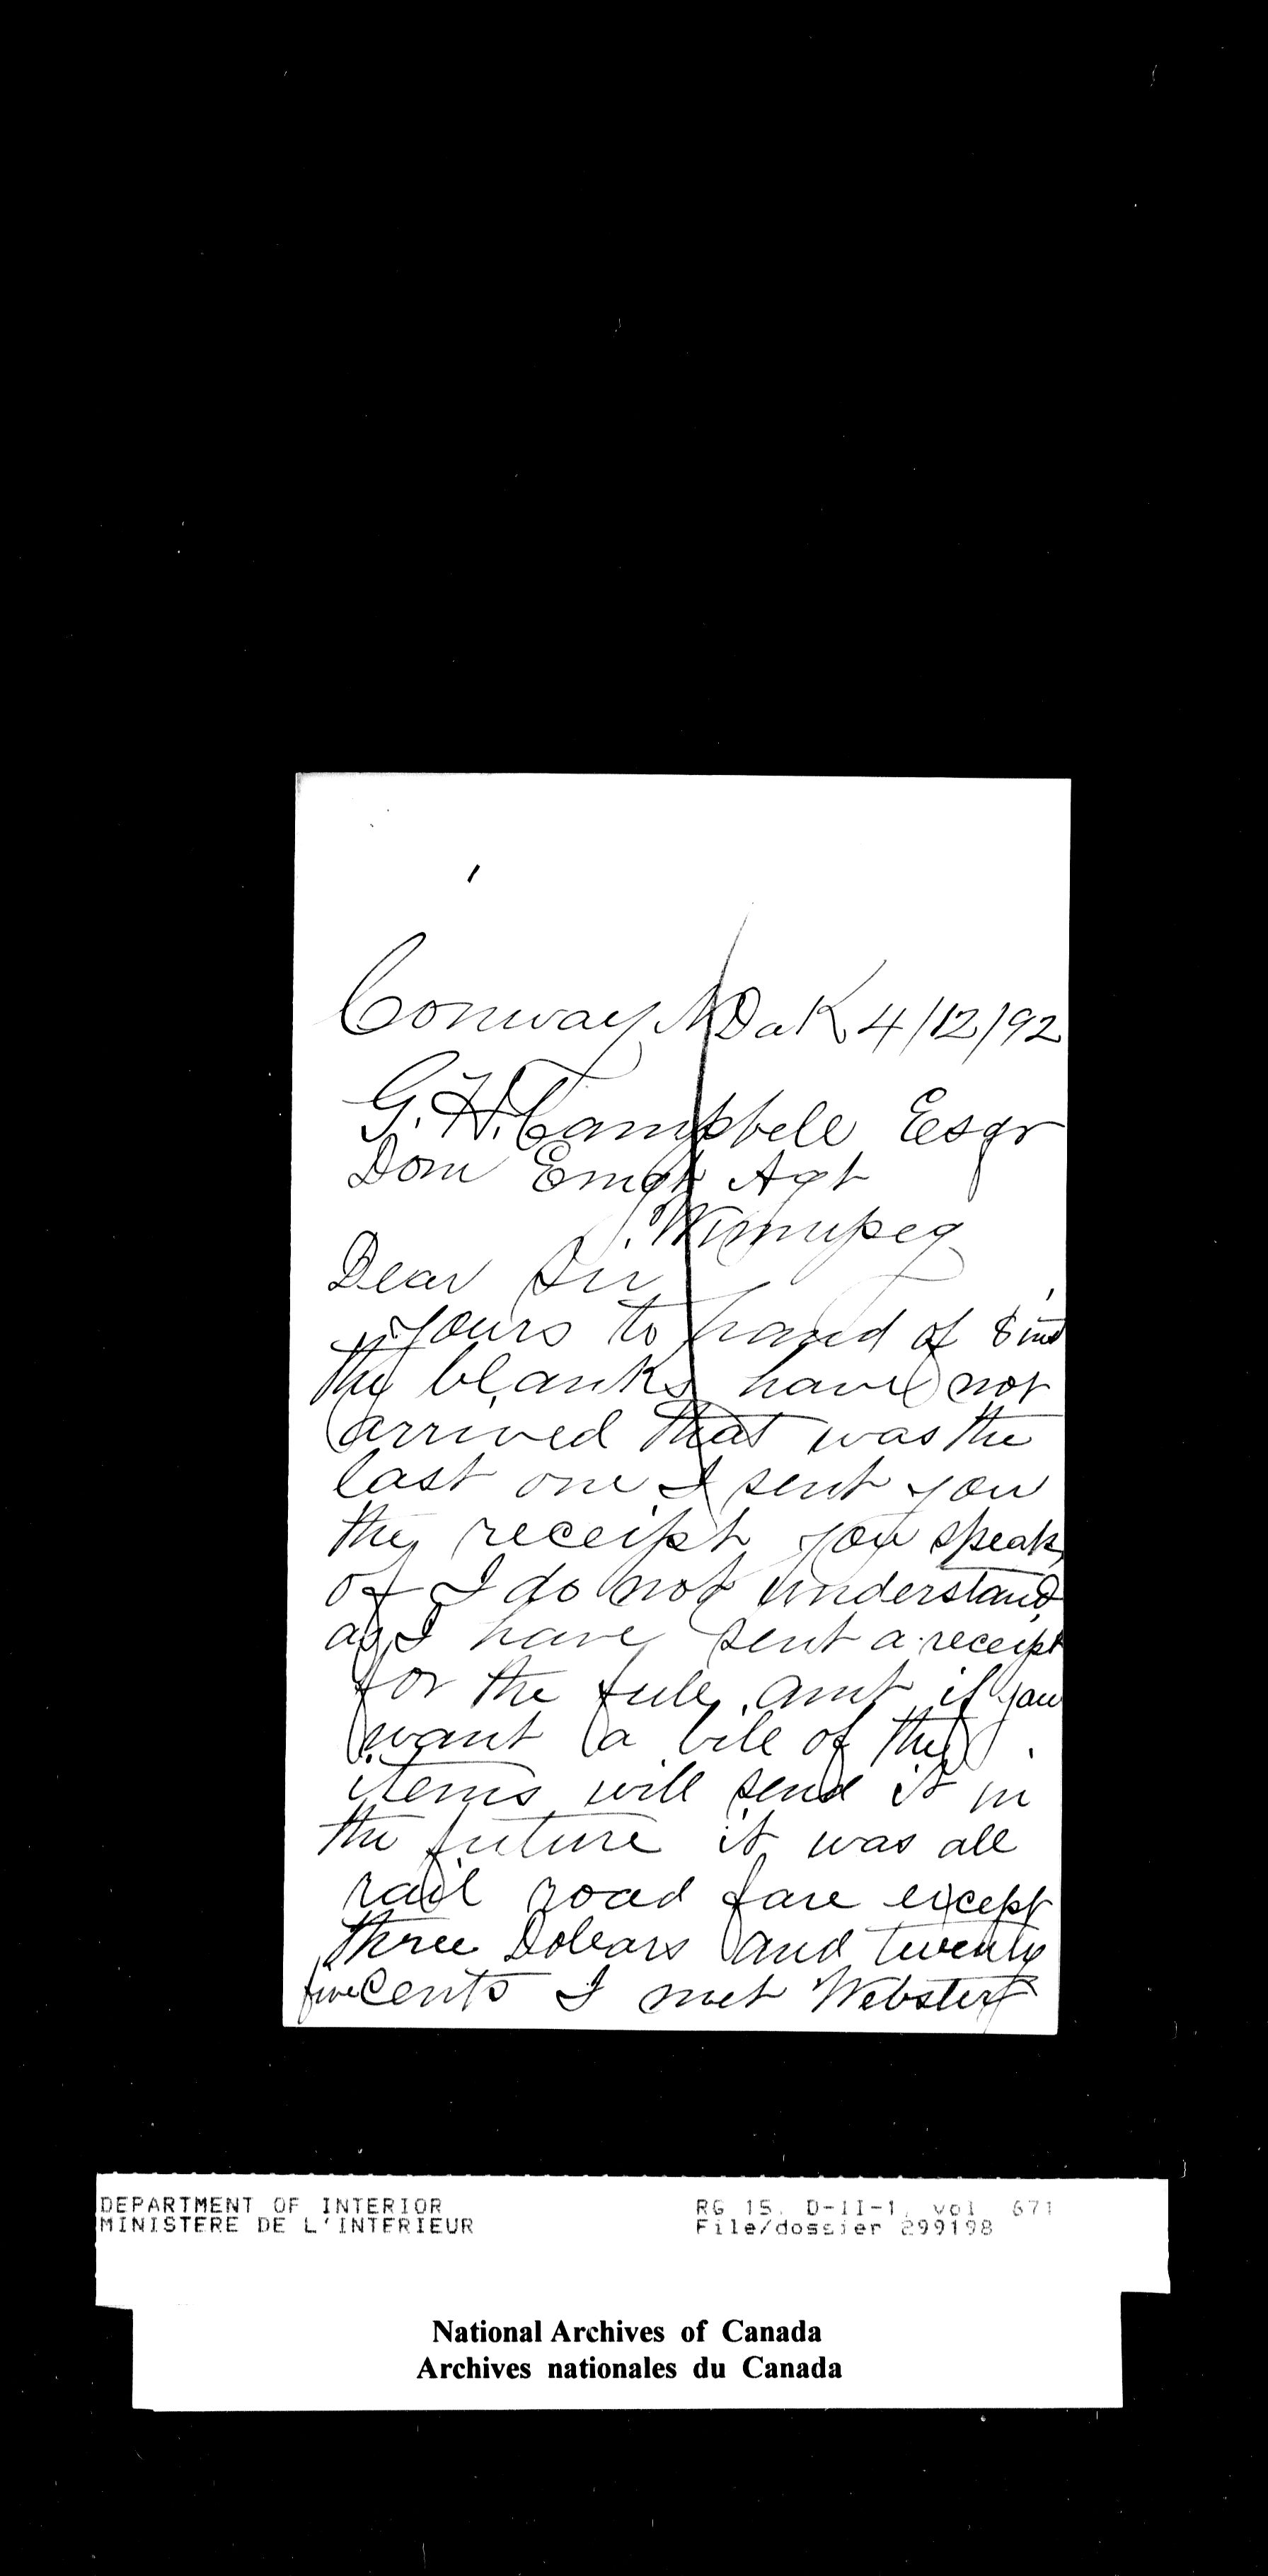 Conway N Dak 4/12/92
G. H. Campbell Esqr
Dom Emgt Agt
Winnipeg
Dear Sir
Yours to hand of 8 inst
the blanks have not
arrived that was the
last one I sent you
the receipt you speak
of I do not understand
as I have sent a receipt
for the full amt if you
want a bill of the
items will send it in
the future it was all
rail road fare except
three Dollars and twenty
five Cents I met Webster
DEPARTMENT OF INTERIOR
MINISTERE DE L'INTERIEUR
RG 15, D-II-1, vol 671
File/dossier 299198
National Archives of Canada
Archives nationales du Canada